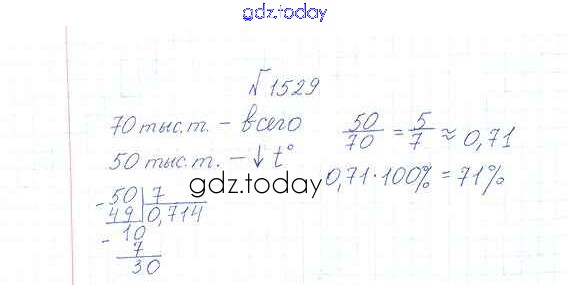 gdz.today
№1529
70 тыс.т. - всего
50 тыс.т. - ↓t°
50/70 = 5/7 ≈ 0,71
0,71·100% = 71%
gdz.today
-50 | 7
49 | 0,714
-10
7
30